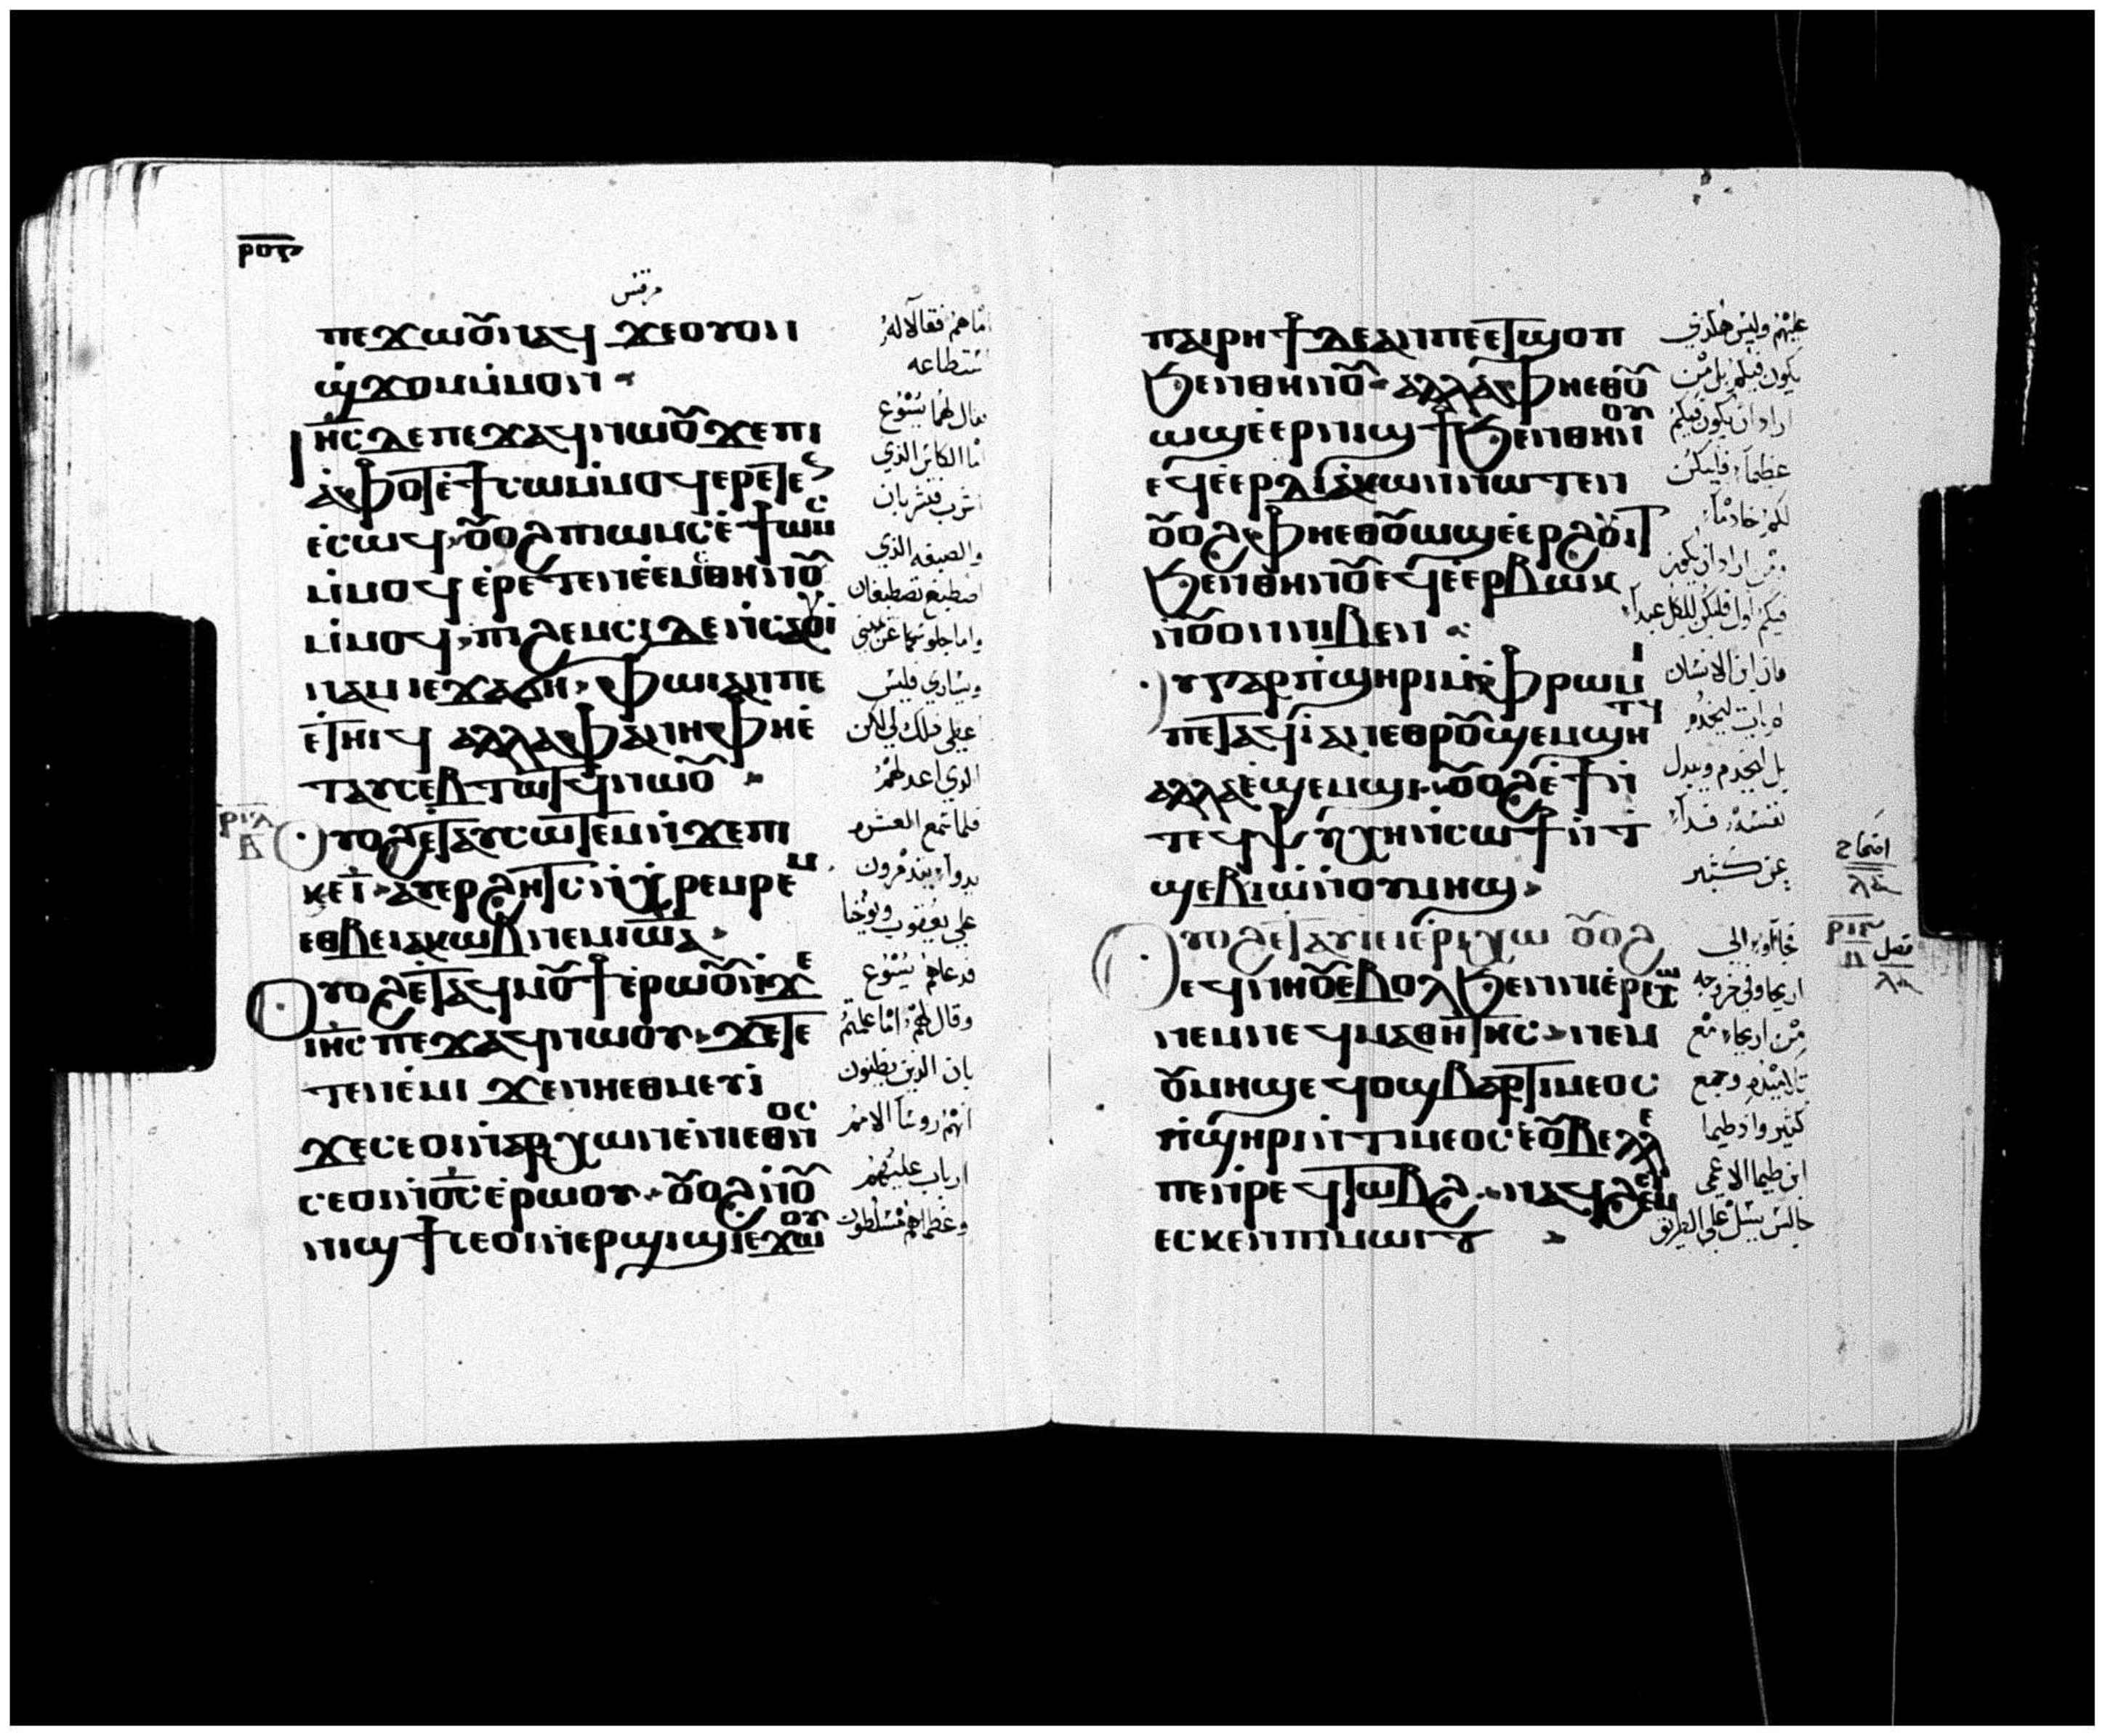 مرقس
ⲡⲉϫⲱⲟⲩ ⲛⲁϥ ϫⲉ ⲟⲩⲟⲛ
ϣϫⲟⲙ ⲙⲙⲟⲛ
ⲓⲏⲥ ⲇⲉ ⲡⲉϫⲁϥ ⲛⲱⲟⲩ ϫⲉ ⲡⲓ
ⲁⲫⲟⲧ ⲉϯⲥⲱ ⲙⲙⲟϥ ⲉⲣⲉⲧⲉⲥ
ⲉⲥⲱϥ ⲟⲩⲟϩ ⲡⲓⲱⲙⲥ ⲉϯⲱⲙⲥ
ⲙⲙⲟϥ ⲉⲣⲉⲧⲉⲛⲉⲉⲙⲥ ⲑⲏⲛⲟⲩ
ⲙⲙⲟϥ ⲡⲓϩⲉⲙⲥⲓ ⲇⲉ ⲛⲥⲁⲟⲩⲓ
ⲛⲁⲙ ⲓⲉ ϫⲁϭⲏ ⲫⲱⲓ ⲁⲛ ⲡⲉ
ⲉⲧⲏⲓϥ ⲁⲗⲗⲁ ⲫⲁ ⲛⲏ ⲫⲏ ⲉ
ⲧⲁⲩⲥⲉⲃⲧⲱⲧϥ ⲛⲱⲟⲩ
ⲟⲩⲟϩ ⲉⲧⲁⲩⲥⲱⲧⲉⲙ ⲛϫⲉ ⲡⲓ
ⲕⲉⲓ ⲁⲩⲉⲣϩⲏⲧⲥ ⲛⲭⲣⲉⲙⲣⲉⲙ
ⲉⲑⲃⲉ ⲓⲁⲕⲱⲃ ⲛⲉⲙ ⲓⲱⲁ
ⲟⲩⲟϩ ⲉⲧⲁϥⲙⲟⲩϯ ⲉⲣⲱⲟⲩ ⲛϫⲉ
ⲓⲏⲥ ⲡⲉϫⲁϥ ⲛⲱⲟⲩ ϫⲉ ⲧⲉ
ⲧⲉⲛⲉⲙⲓ ϫⲉ ⲛⲏ ⲉⲑⲙⲉⲩⲓ
ϫⲉ ⲥⲉⲟⲓ ⲛⲁⲣⲭⲱⲛ ⲉⲛⲓⲉⲑⲛⲟⲥ
ⲥⲉⲟⲓ ⲛⲟⲥ ⲉⲣⲱⲟⲩ ⲟⲩⲟϩ ⲛⲟⲩ
ⲛⲓϣϯ ⲥⲉⲟⲓ ⲛⲉⲣϣⲓϣⲓ ⲉϫⲱⲟⲩ
اما هم فقالا له
نستطاعه
فقال لهما يسوع
اما الكاس الذي
اشرب فتشربان
والصبغه الذي
اصطبغ تصطبغان
واما جلوسكما عن يميني
ويساري فليس
عطي ذلك لي لكن
الذي اعد لهم
فلما سمع العشره
بدوا يتذمرون
علي يعقوب ويوحنا
فدعاهم يسوع
وقال لهم اما علمتم
بان الذين يظنون
انهم روسا الامم
ارباب عليهم
وعظماهم متسلطون
ⲡⲁⲓⲣⲏϯ ⲇⲉ ⲁⲛ ⲡⲉ ⲉⲧϣⲟⲡ
ϧⲉⲛ ⲑⲏⲛⲟⲩ ⲁⲗⲗⲁ ⲫⲏ ⲉⲑⲟⲩ
ⲱϣ ⲉⲉⲣⲛⲓϣϯ ϧⲉⲛ ⲑⲏⲛⲟⲩ
ⲉϥⲉⲉⲣⲇⲓⲁⲕⲱⲛ ⲛⲱⲧⲉⲛ
ⲟⲩⲟϩ ⲫⲏ ⲉⲑⲟⲩⲱϣ ⲉⲉⲣϩⲟⲩⲓⲧ
ϧⲉⲛ ⲑⲏⲛⲟⲩ ⲉϥⲉⲉⲣⲃⲱⲕ
ⲛⲟⲩⲟⲛ ⲛⲓⲃⲉⲛ
ⲟⲩⲅⲁⲣ ⲡϣⲏⲣⲓ ⲙⲫⲣⲱⲙⲓ
ⲡⲉⲧⲁϥⲓ ⲁⲛ ⲉⲑⲣⲟⲩϣⲉⲙϣⲏⲧϥ
ⲁⲗⲗⲁ ⲉϣⲉⲙϣⲓ ⲟⲩⲟϩ ⲉϯ ⲛ
ⲧⲉϥⲯⲩⲭⲏ ⲛⲥⲱϯ ⲛⲧ
ϣⲉⲃⲓⲱ ⲛⲟⲩⲙⲏϣ
ⲟⲩⲟϩ ⲉⲧⲁⲩⲓ ⲉⲓⲉⲣⲓⲭⲱ ⲟⲩⲟϩ
ⲉϥⲛⲏⲟⲩ ⲉⲃⲟⲗ ϧⲉⲛ ⲓⲉⲣⲓⲭⲱ
ⲛⲉⲙ ⲛⲉϥⲙⲁⲑⲏⲧⲏⲥ ⲛⲉⲙ
ⲟⲩⲙⲏϣ ⲉϥⲟϣ ⲃⲁⲣⲧⲓⲙⲉⲟⲥ
ⲡϣⲏⲣⲓ ⲛⲧⲓⲙⲉⲟⲥ ⲉⲟⲩⲃⲉⲗⲗⲉ
ⲡⲉ ⲛⲣⲉϥⲧⲱⲃϩ ⲛⲁϥϩⲉⲙ
ⲉⲥⲕⲉⲛ ⲡⲓⲙⲱⲓⲧ
عليهم وليس هكذي
يكون فيكم بل من
اراد ان يكون فيكم
عظيما فليكن
لكم خادما
ومن اراد ان يكون
فيكم اول فليكن للكل عبدا
فان ابن الانسان
لم يات ليخدم
بل ليخدم ويبدل
نفسه فدا
عن كثير
فجاوا الي
اريحا وفي خروجه
من اريحا مع
تلاميذه وجمع
كثير واذ طيما
ابن طيما الاعمي
جالس يسل علي الطريق
فصل